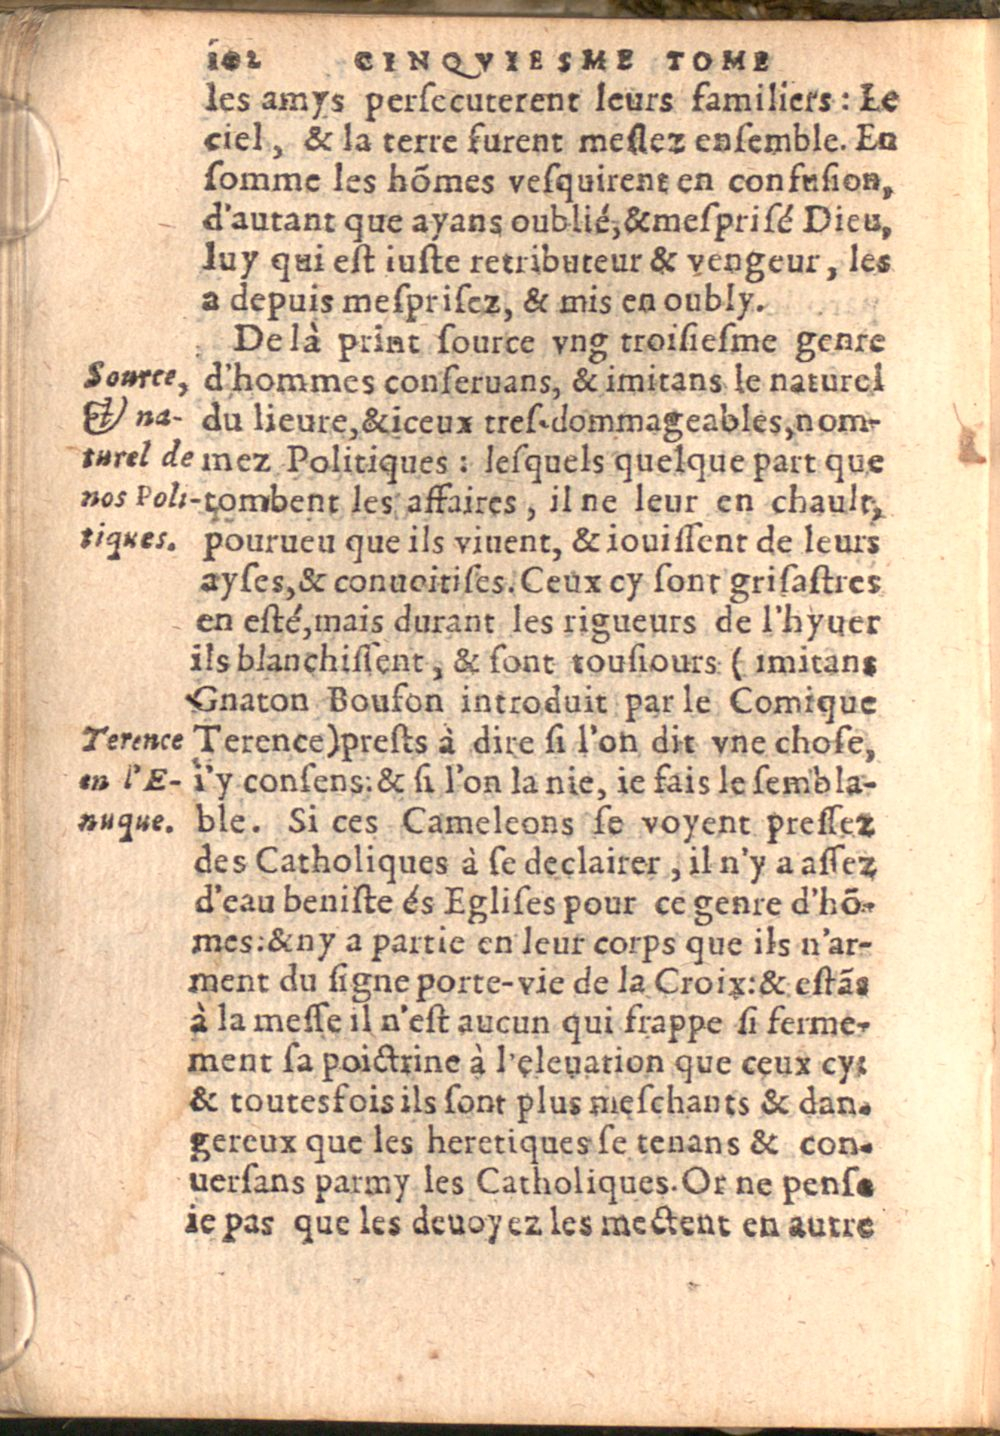 102 CINQVIESME TOME
les amys perſecuterent leurs familiers : Le
ciel, & la terre furent meſlez enſemble. En
ſomme les hõmes veſquirent en confuſion,
d'autant que ayans oublié, &meſpriſé Dieu,
luy qui eſt iuſte retributeur & vengeur, les
a depuis meſpriſez, & mis en oubly.
De là print ſource vng troiſieſme genre
d'hommes conſeruans, & imitans le naturel
du lieure, &iceux treſ-dommageables, nom-
mez Politiques : leſquels quelque part que
tombent les affaires, il ne leur en chault,
pourueu que ils viuent, & iouiſſent de leurs
ayſes, & conuoitiſes. Ceux cy ſont griſaſtres
en eſté, mais durant les rigueurs de l'hyuer
ils blanchiſſent, & ſont touſiours (imitans
Gnaton Boufon introduit par le Comique
Terence) preſts à dire ſi l'on dit vne choſe,
i'y conſens: & ſi l'on la nie, ie fais le ſembla-
ble. Si ces Cameleons ſe voyent preſſez
des Catholiques à ſe declairer, il n'y a aſſez
d'eau beniſte és Egliſes pour ce genre d'hõ-
mes: &ny a partie en leur corps que ils n'ar-
ment du ſigne porte-vie de la Croix: & eſtãs
à la meſſe il n'eſt aucun qui frappe ſi ferme-
ment ſa poictrine à l'eleuation que ceux cy:
& toutesfois ils ſont plus meſchants & dan-
gereux que les heretiques ſe tenans & con-
uerſans parmy les Catholiques. Or ne penſe
ie pas que les deuoyez les mectent en autre
Source,
& na-
turel de
nos Poli-
tiques.
Terence
en l'E-
nuque.